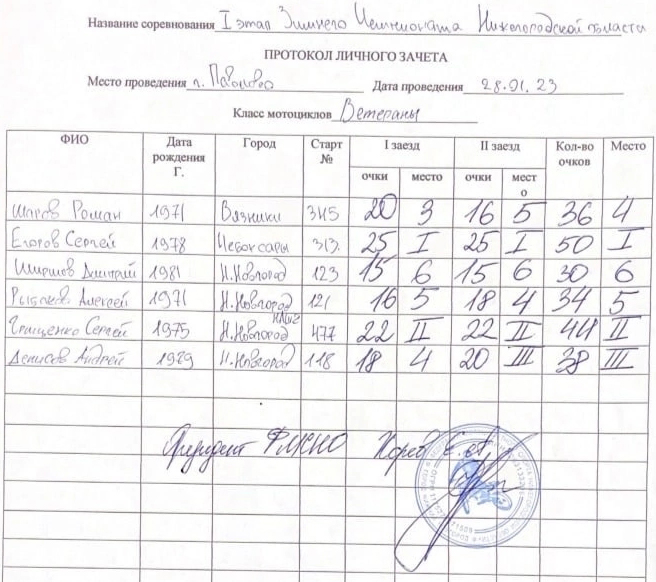 Название соревнования I этап Зимнего Чемпионата Нижегородской области
ПРОТОКОЛ ЛИЧНОГО ЗАЧЕТА
Место проведения г. Павлово Дата проведения 28.01.23
Класс мотоциклов Ветераны
ФИО Дата рождения Г. Город Старт № I заезд II заезд Кол-во очков Место
очки место очки место
Шаров Роман 1971 Вязники 345 20 3 16 5 36 4
Егоров Сергей 1978 Чебоксары 313 25 I 25 I 50 I
Ширшов Дмитрий 1981 Н.Новгород 123 15 6 15 6 30 6
Алексей 1971 Н.Новгород 121 16 5 18 4 34 5
Грищенко Сергей 1975 Н.Новгород 477 22 II 22 II 44 II
Денисов Андрей 1979 Н.Новгород 118 18 4 20 III 38 III
Президент ФМСНО